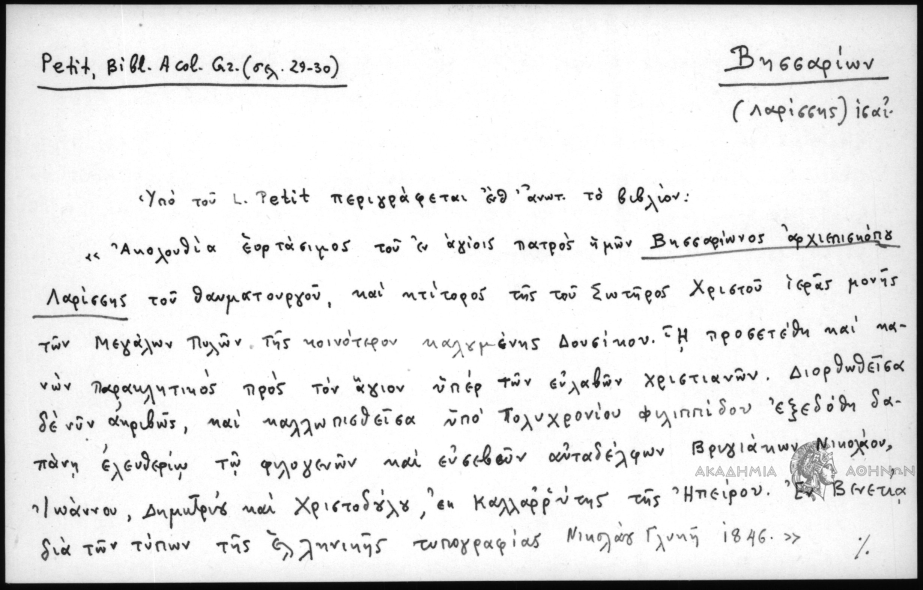 Petit, Bibl. Acol. Gr. (σελ. 29-30)
Βησσαρίων
(Λαρίσσης) ἱσαΐ.
Ὑπό τοῦ L. Petit περιγράφεται ἐνθ' ἀνωτ. τό βιβλίον:
« Ἀκολουθία ἑορτάσιμος τοῦ ἐν ἁγίοις πατρός ἡμῶν Βησσαρίωνος ἀρχιεπισκόπου
Λαρίσσης τοῦ θαυματουργοῦ, καί κτίτορος τῆς τοῦ Σωτῆρος Χριστοῦ ἱερᾶς μονῆς
τῶν Μεγάλων Πυλῶν τῆς κοινότερον καλουμένης Δουσίκου. Ἧ προσετέθη καί κα-
νών παρακλητικός πρός τόν ἅγιον ὑπέρ τῶν εὐλαβῶν χριστιανῶν. Διορθωθεῖσα
δέ νῦν ἀκριβῶς, καί καλλωπισθεῖσα ὑπό Πολυχρονίου Φιλιππίδου ἐξεδόθη δα-
πάνῃ ἐλευθερίῳ τῶν φιλογενῶν καί εὐσεβῶν αὐταδέλφων Βριγιάκων Νικολάου,
Ἰωάννου, Δημητρίου καί Χριστοδούλου, ἐκ Καλλαῤῥύτης τῆς Ἠπείρου. Ἐν Βενετίᾳ
διά τῶν τύπων τῆς Ἑλληνικῆς τυπογραφίας Νικολάου Γλυκῆ 1846. » ./.
ΑΚΑΔΗΜΙΑ ΑΘΗΝΩΝ